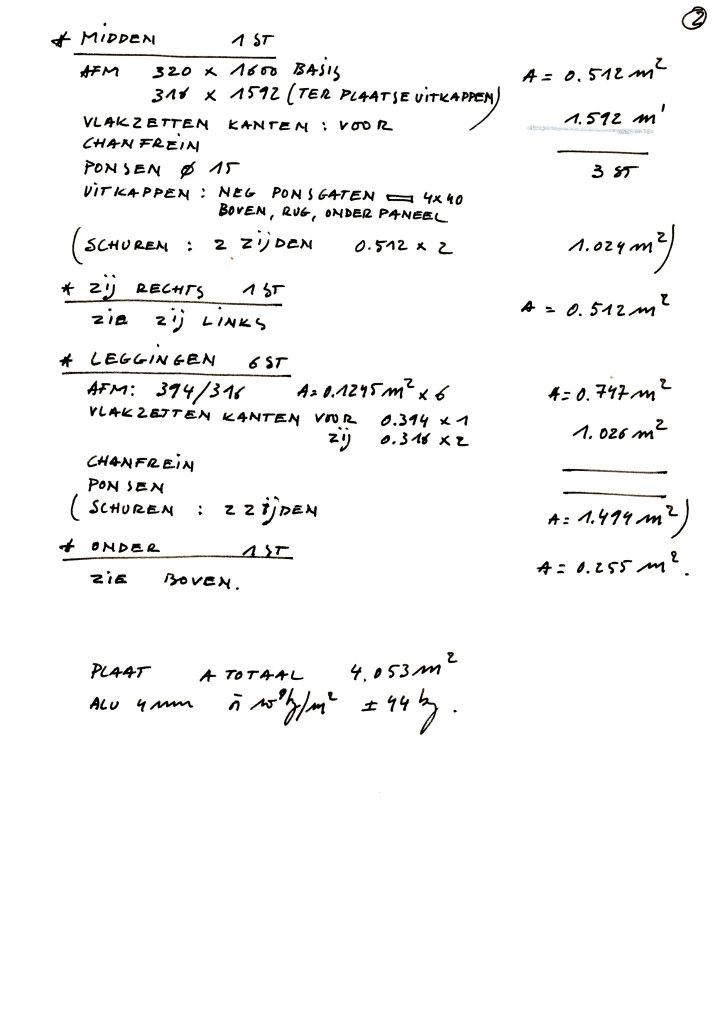 2
* MIDDEN 1 ST
AFM 320 x 1600 BASIS A = 0.512 m²
316 x 1592 (TER PLAATSE UITKAPPEN)
VLAKZETTEN KANTEN : VOOR 1.592 m'
CHANFREIN
PONSEN ø 15 3 ST
UITKAPPEN : NEG PONSGATEN ▭ 4x40
BOVEN, RUG, ONDER PANEEL
(SCHUREN : 2 ZIJDEN 0.512 x 2 1.024 m²)
* ZIJ RECHTS 1 ST
ZIE ZIJ LINKS A = 0.512 m²
* LEGGINGEN 6 ST
AFM: 394/316 A = 0.1245 m² x 6 A = 0.747 m²
VLAKZETTEN KANTEN VOOR 0.394 x 1
ZIJ 0.316 x 2 1.026 m²
CHANFREIN
PONSEN
(SCHUREN : 2 ZIJDEN A = 1.494 m²)
* ONDER 1 ST
ZIE BOVEN. A = 0.255 m².
PLAAT A TOTAAL 4.053 m²
ALU 4 mm kg/m² ± 44 kg.